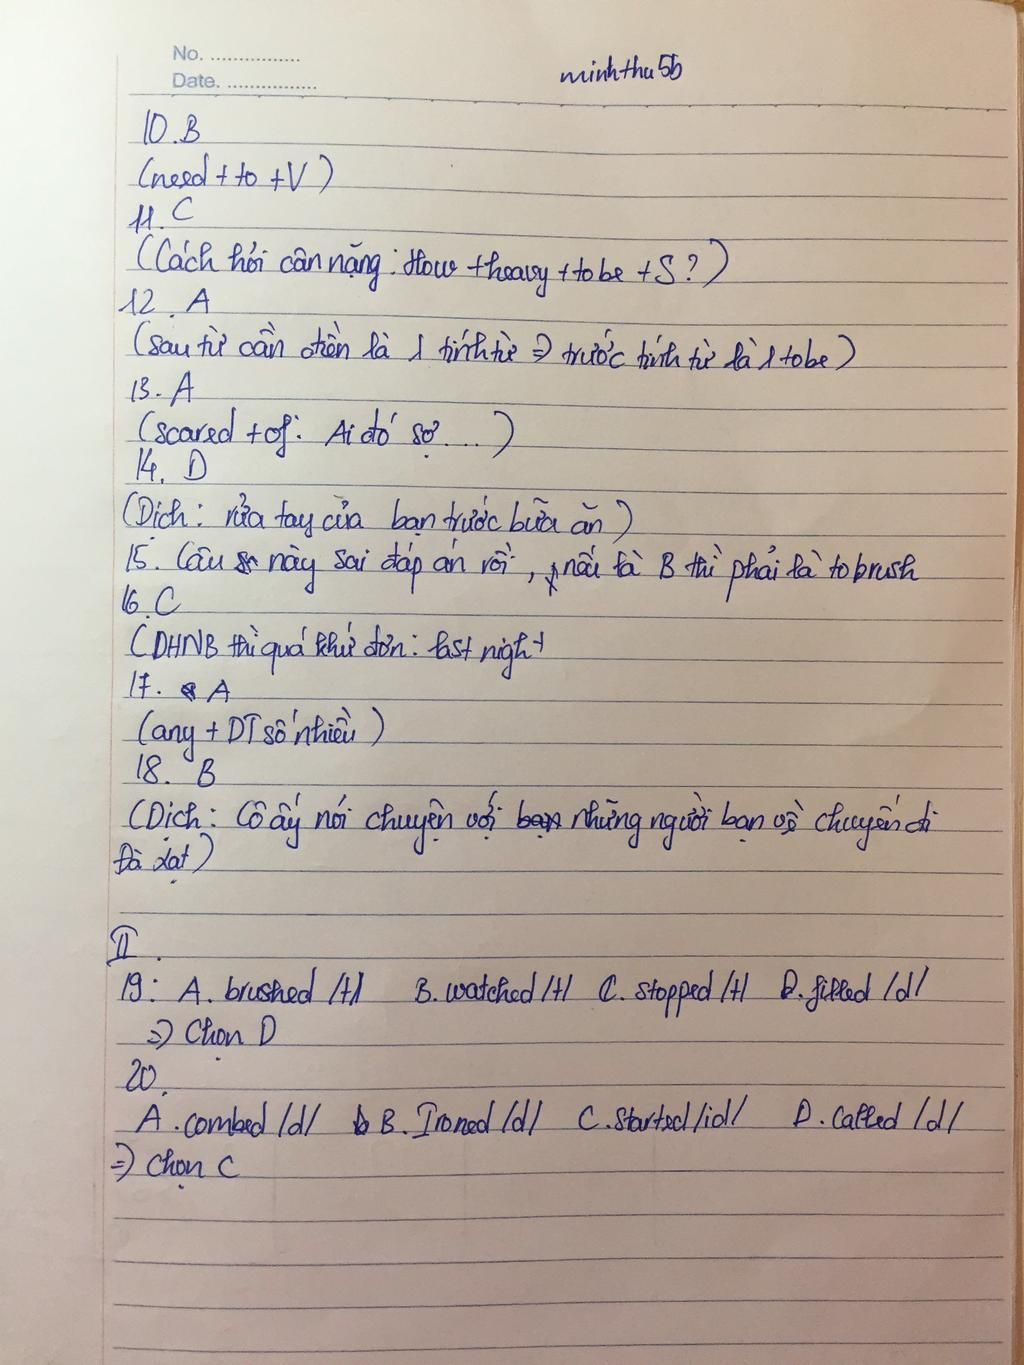 No. ..................
minhthu5b
Date. ..................
10.B
(need + to + V)
11. C
(Cách hỏi cân nặng: How + heavy + to be + S?)
12. A
(sau từ cần điền là 1 tính từ => trước tính từ là 1 tobe)
13. A
(scared + of: Ai đó sợ ....)
14. D
(Dịch: rửa tay của bạn trước bữa ăn)
15. Câu này sai đáp án rồi, nếu là B thì phải là to brush
16. C
(DHNB thì quá khứ đơn: last night
17. A
(any + DT số nhiều)
18. B
(Dịch: Cô ấy nói chuyện với những người bạn về chuyến đi
Đà Lạt)
II.
19: A. brushed /t/ B. watched /t/ C. stopped /t/ D. filled /d/
=> Chọn D
20.
A. combed /d/ B. Ironed /d/ C. started /id/ D. called /d/
=> Chọn C